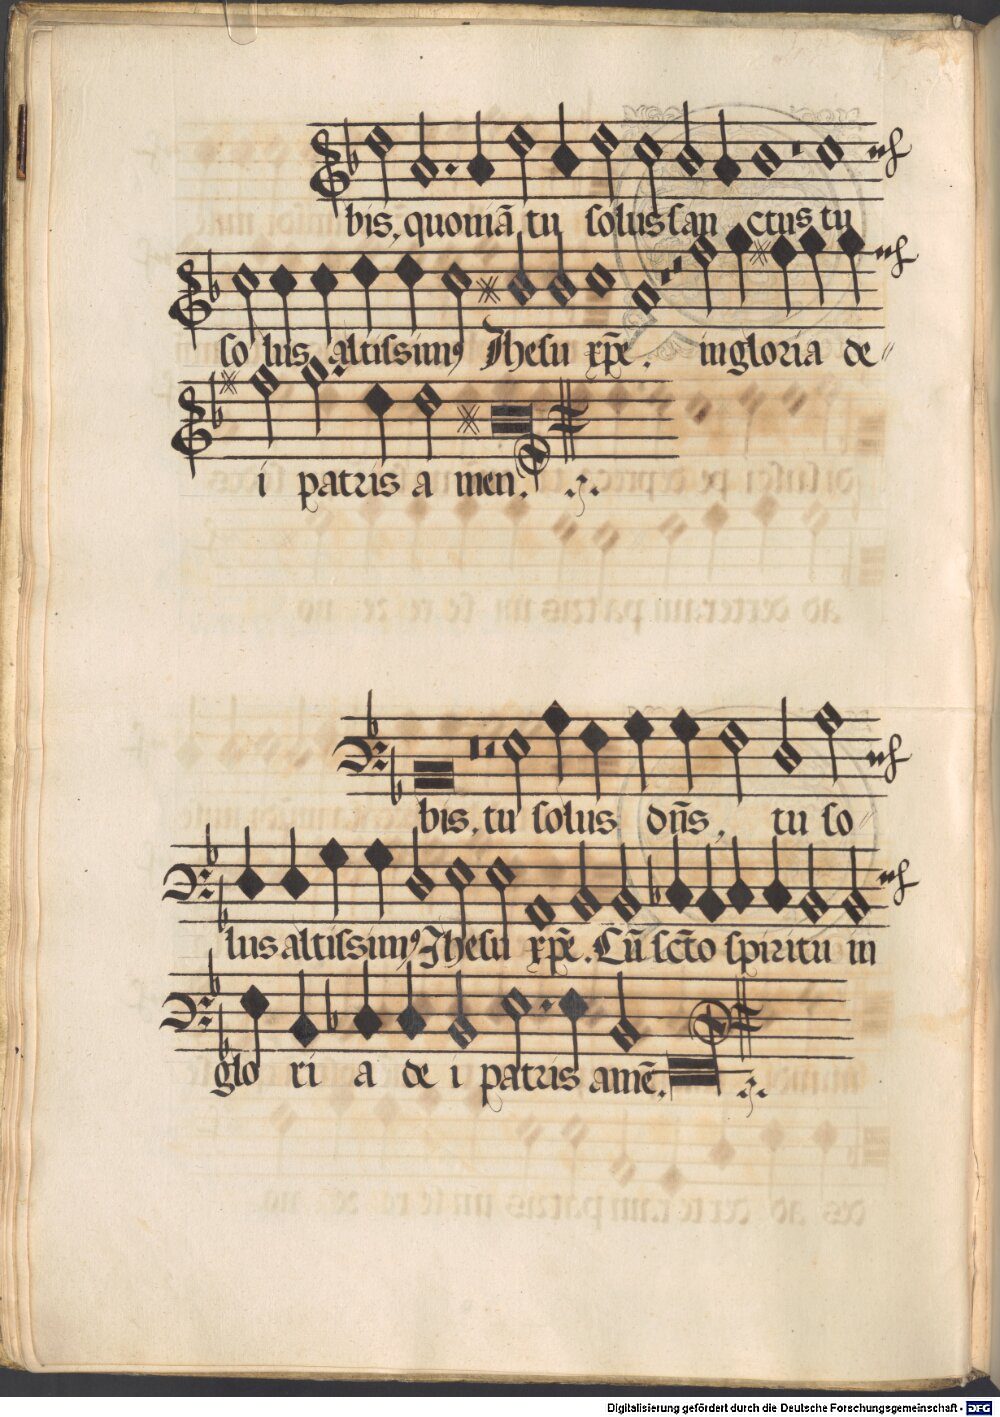 bis. quoniã tu solus san ctus tu
so lus altissimꝰ Jhesu xp̃e. in gloria de
i patris a men.
bis. tu solus dñs, tu so
lus altissimꝰ Jhesu xp̃e. Cũ sc̃to spiritu in
glo ri a de i patris amẽ.
Digitalisierung gefördert durch die Deutsche Forschungsgemeinschaft - DFG